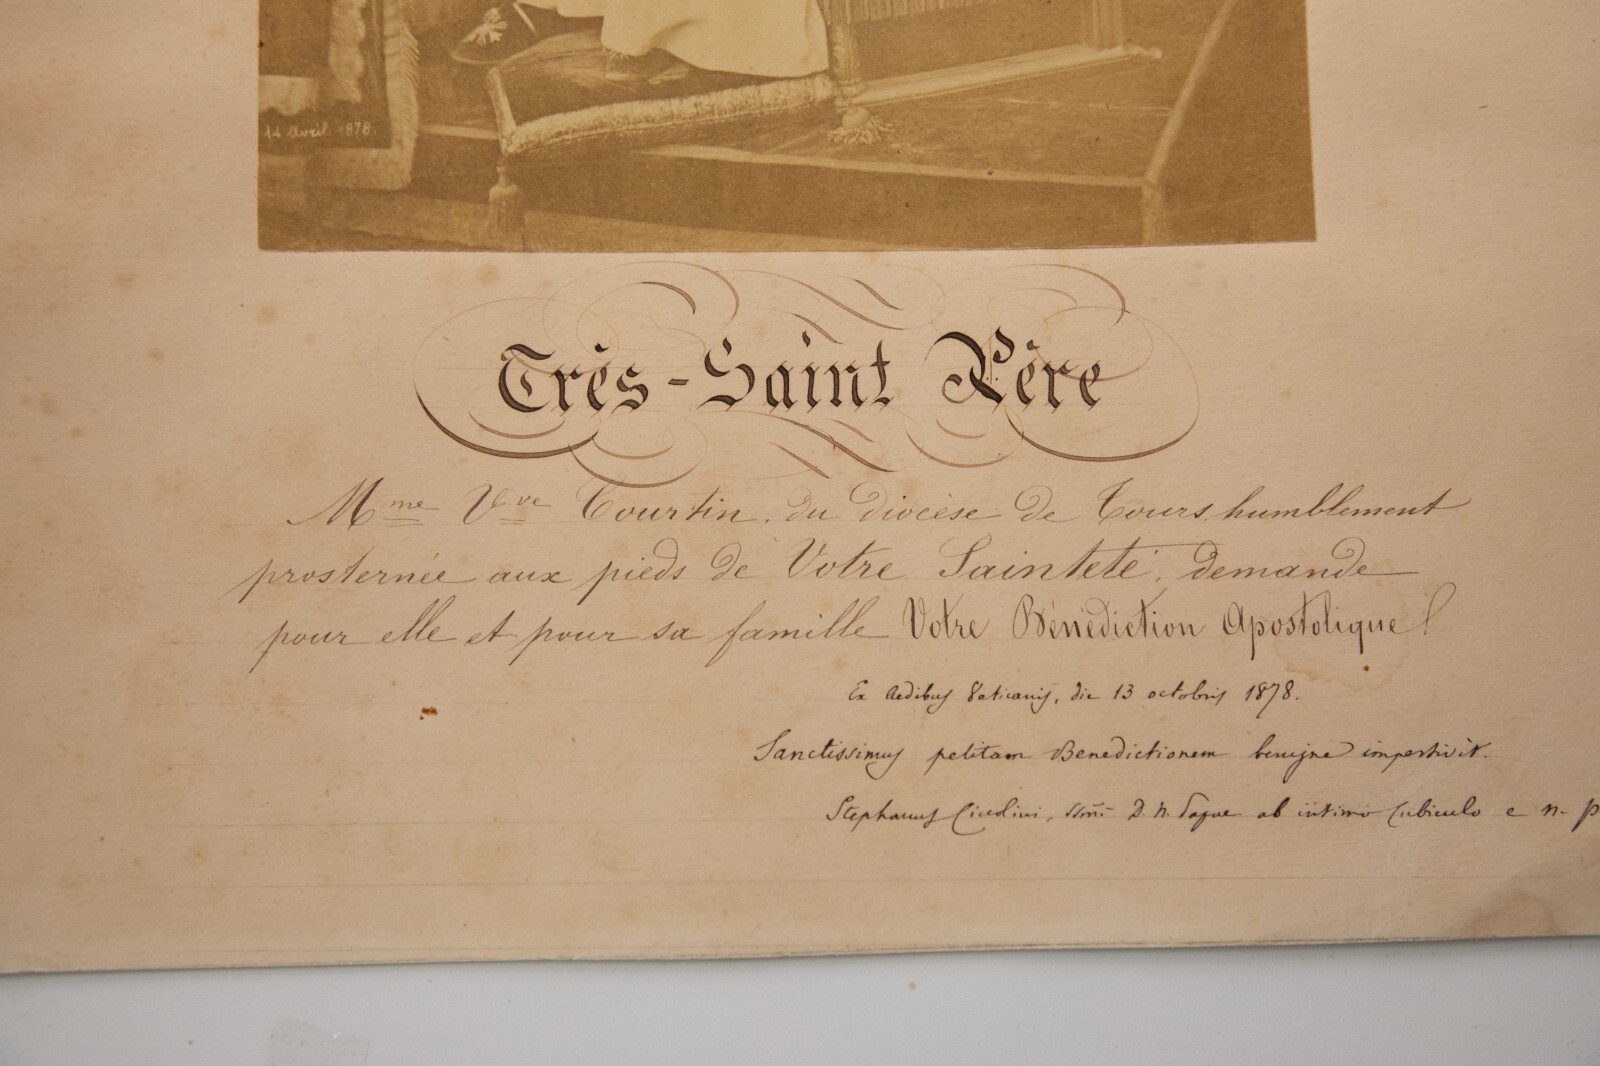 14 avril 1878.
Très-Saint Père
Mme Vve Tourtin, du diocèse de Tours humblement
prosternée aux pieds de Votre Sainteté, demande
pour elle et pour sa famille Votre Bénédiction Apostolique
Ex Aedibus Vaticanis, die 13 octobris 1878.
Sanctissimus petitam Benedictionem benigne impertivit.
Stephanus Ciccolini, SSmi D. N. Papae ab intimo Cubiculo e n. p